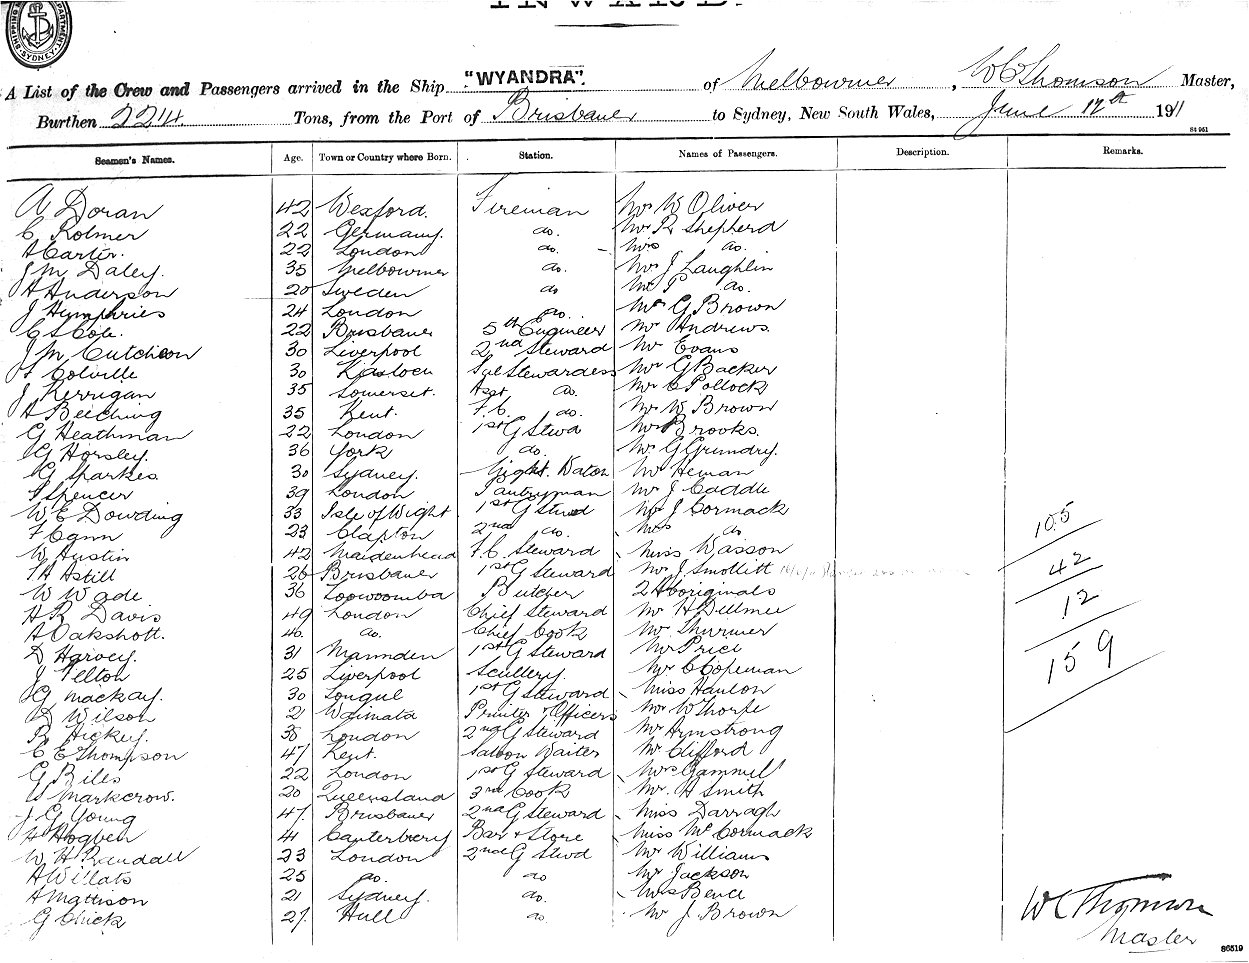 INWARD.
SHIPPING DEPARTMENT SYDNEY
A List of the Crew and Passengers arrived in the Ship "WYANDRA". of Melbourne, W C Thomson Master,
Burthen 2214 Tons, from the Port of Brisbane to Sydney, New South Wales, June 17th 1911
84 951
Seamen's Names. Age. Town or Country where Born. Station. Names of Passengers. Description. Remarks.
A Doran 42 Wexford. Fireman Mr W Oliver
C Rolmer 22 Germany. do. Mr R Shepherd
A Carter. 22 London do. Mrs do.
J M Daley. 35 Melbourne do. Mr J Laughlin
A Anderson 20 Sweden do Mr P do.
J Humphries 24 London do. Mr G Brown
C S Cole. 22 Brisbane 5th Engineer Mr Andrews.
J McCutcheon 30 Liverpool 2nd Steward Mr Evans
Colville 30 Sal Stewardess Mr G Backer
J Kerrigan 35 Somerset. Asst do. Mr C Pollock
A Beeching 35 Kent. F.C. do. Mr W Brown
G Heathman 22 London 1st G Stwd Mr Brooks.
G Horsley. 36 York do. Mr G Grundry.
G Sparkes 30 Sydney. Night Watch Mr Heman
Spencer 39 London Pantryman Mr J Caddle
W E Dowding 33 Isle of Wight 1st G Stwd Mr J Cormack
F Cann 23 Clapton 2nd do. Mrs do
W Austin 42 Maidenhead F.C. Steward Miss Wasson
Astill 26 Brisbane 1st G Steward Mr J Smollett
W Wade 36 Toowoomba Butcher 2 Aboriginals
H R Davis 49 London Chief Steward Mr H Dillmer
A Oakshott. 40. do. Chief Cook Mr Shirmer
D Harvey. 31 1st G Steward Mr Price
J Telton 25 Liverpool Scullery. Mr C Copeman
G Mackay. 30 Tongue 1st G Steward Miss Hanlon
D Wilson 21 Waimata Printer & Officers Mr W Thorpe
R Hickey. 38 London 2nd G Steward Mr Armstrong
C E Thompson 47 Kent. Saloon Waiter Mr Clifford
G Biles 22 London 1st G Steward Mrs Gammell
Markcrow. 20 Queensland 3rd Cook Mr. H Smith
J G Young 47. Brisbane 2nd G Steward Miss Darragh
A Hogben 41 Canterbury Bar & Store Miss McCormack
W H Randall 23 London 2nd G Stwd Mr Williams
A Willats 25 do. do Mr Jackson
A Mattison 21 Sydney. do. Mrs Bence
G Chick 27. Hull do. Mr J Brown
105
42
12
159
W C Thomson
Master
86519